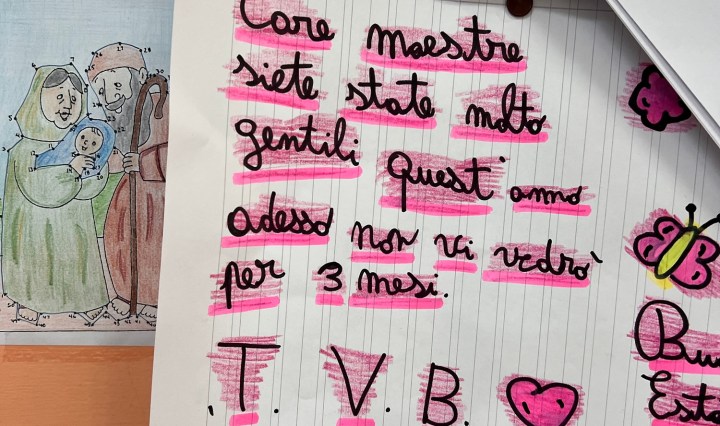 Care maestre
siete state molto
gentili quest'anno
adesso non vi vedrò
per 3 mesi.
T. V. B.